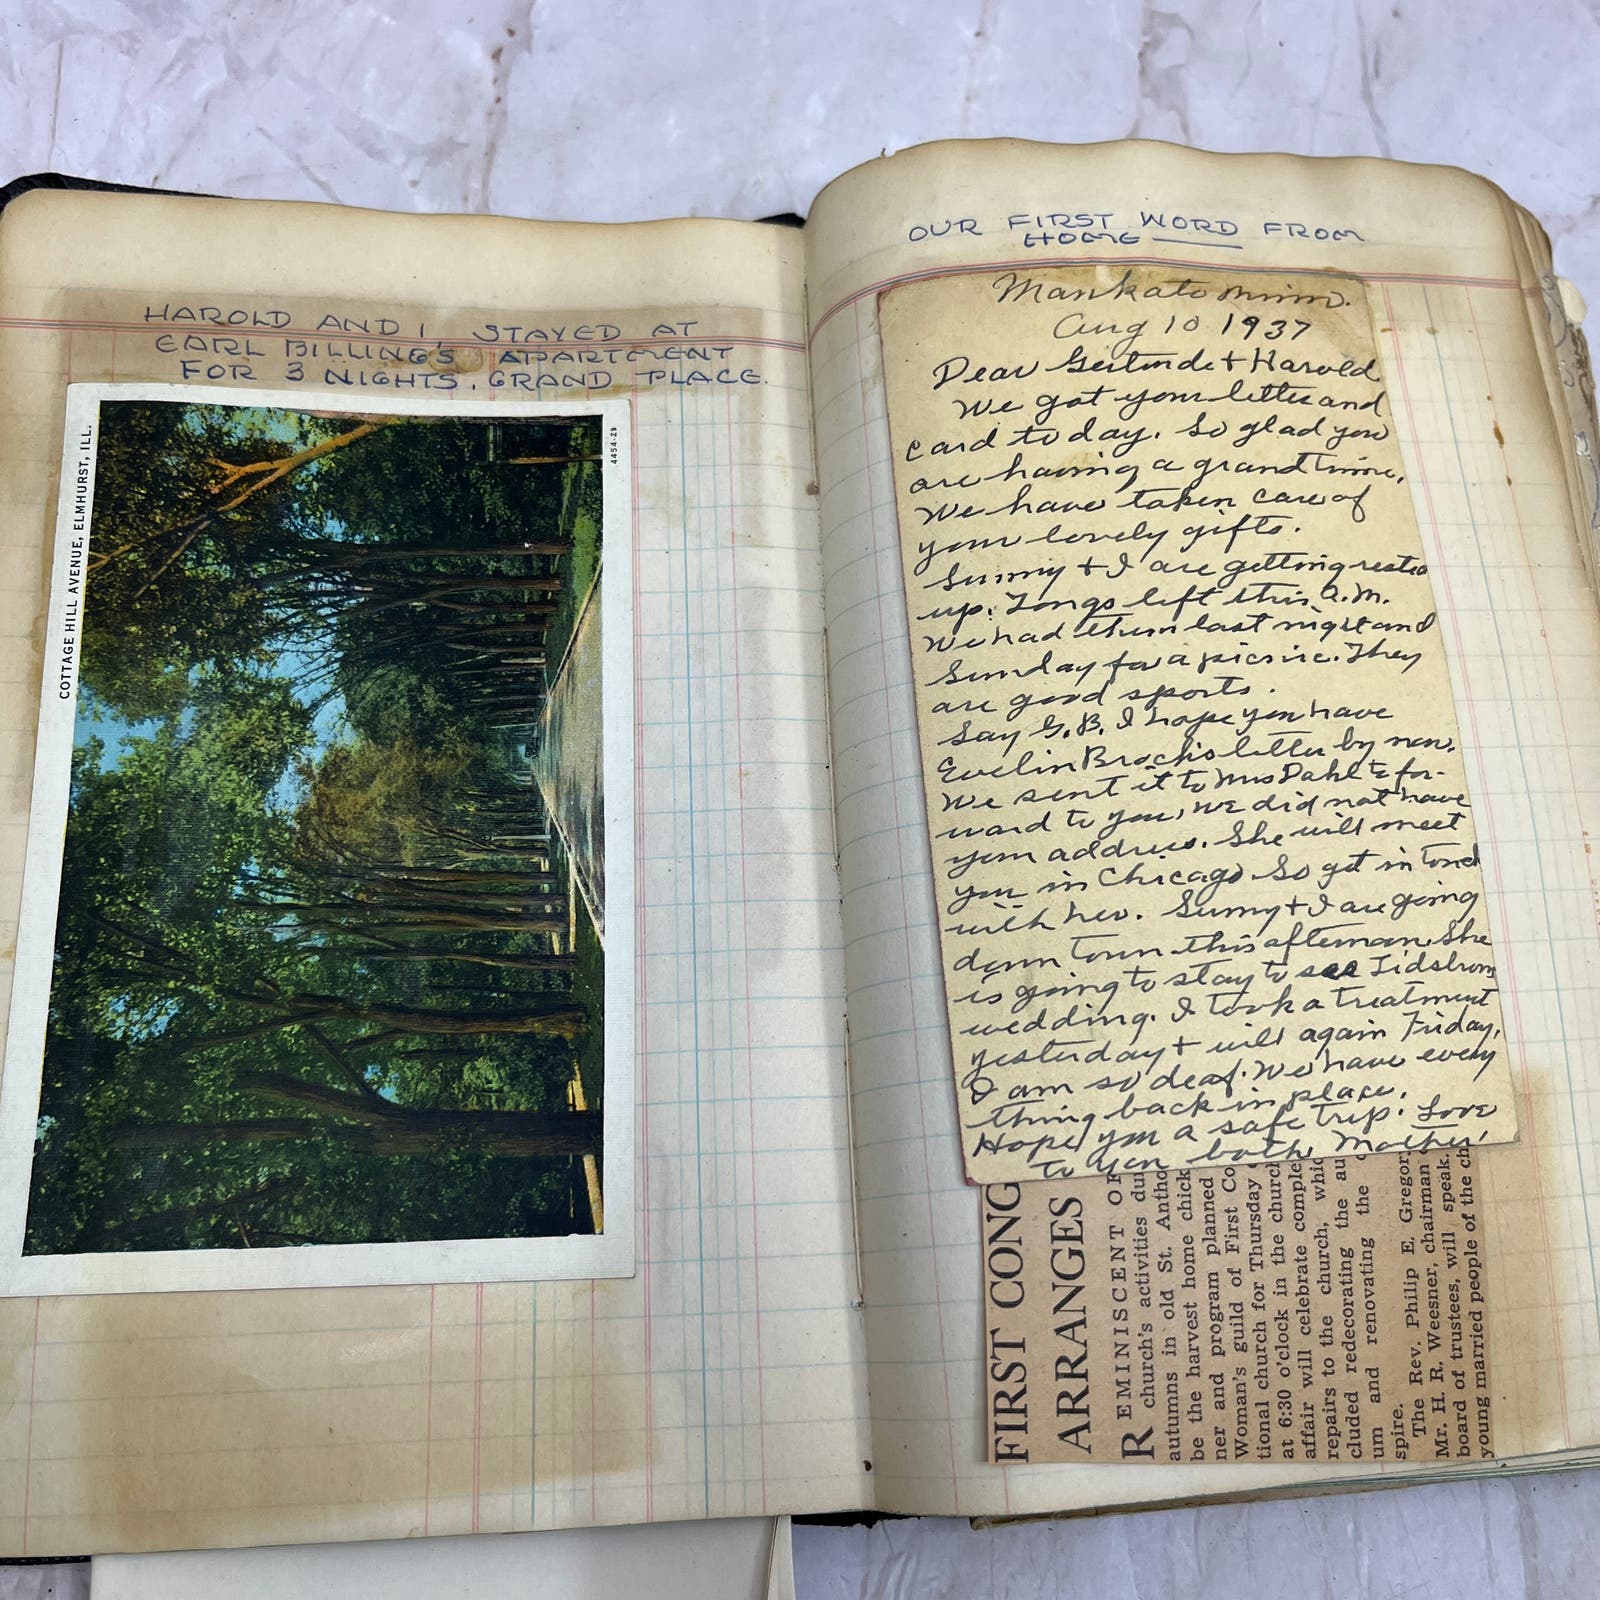 HAROLD AND I, STAYED AT
EARL BILLINGS APARTMENT
FOR 3 NIGHTS. GRAND PLACE.
COTTAGE HILL AVENUE, ELMHURST, ILL.
4454-29
OUR FIRST WORD FROM
HOME
Mankato Minn.
Aug 10 1937
Dear Gertrude + Harold
We got your letter and
card today. So glad you
are having a grand time.
We have taken care of
your lovely gifts.
Sunny + I are getting rested
up. Longs left this A.M.
We had them last night and
Sunday for a picnic. They
are good sports.
Say G.B. I hope you have
Evelin Brock's letter by now.
We sent it to Mrs Dahl to for-
ward to you, we did not have
your address. She will meet
you in Chicago So get in touch
with her. Sunny + I are going
down town this afternoon. She
is going to stay to see Tidstrom
wedding. I took a treatment
yesterday + will again Friday,
I am so deaf. We have every
thing back in place.
Hope you a safe trip. Love
to you both, Mother.
FIRST CONG
ARRANGES
REMINISCENT OF
church's activities du
autumns in old St. Antho
be the harvest home chick
ner and program planned
Woman's guild of First Co
tional church for Thursday
at 6:30 o'clock in the church
affair will celebrate comple
repairs to the church, whic
cluded redecorating the au
um and renovating the
spire.
The Rev. Philip E. Gregor
Mr. H. R. Weesner, chairman
board of trustees, will speak.
young married people of the ch